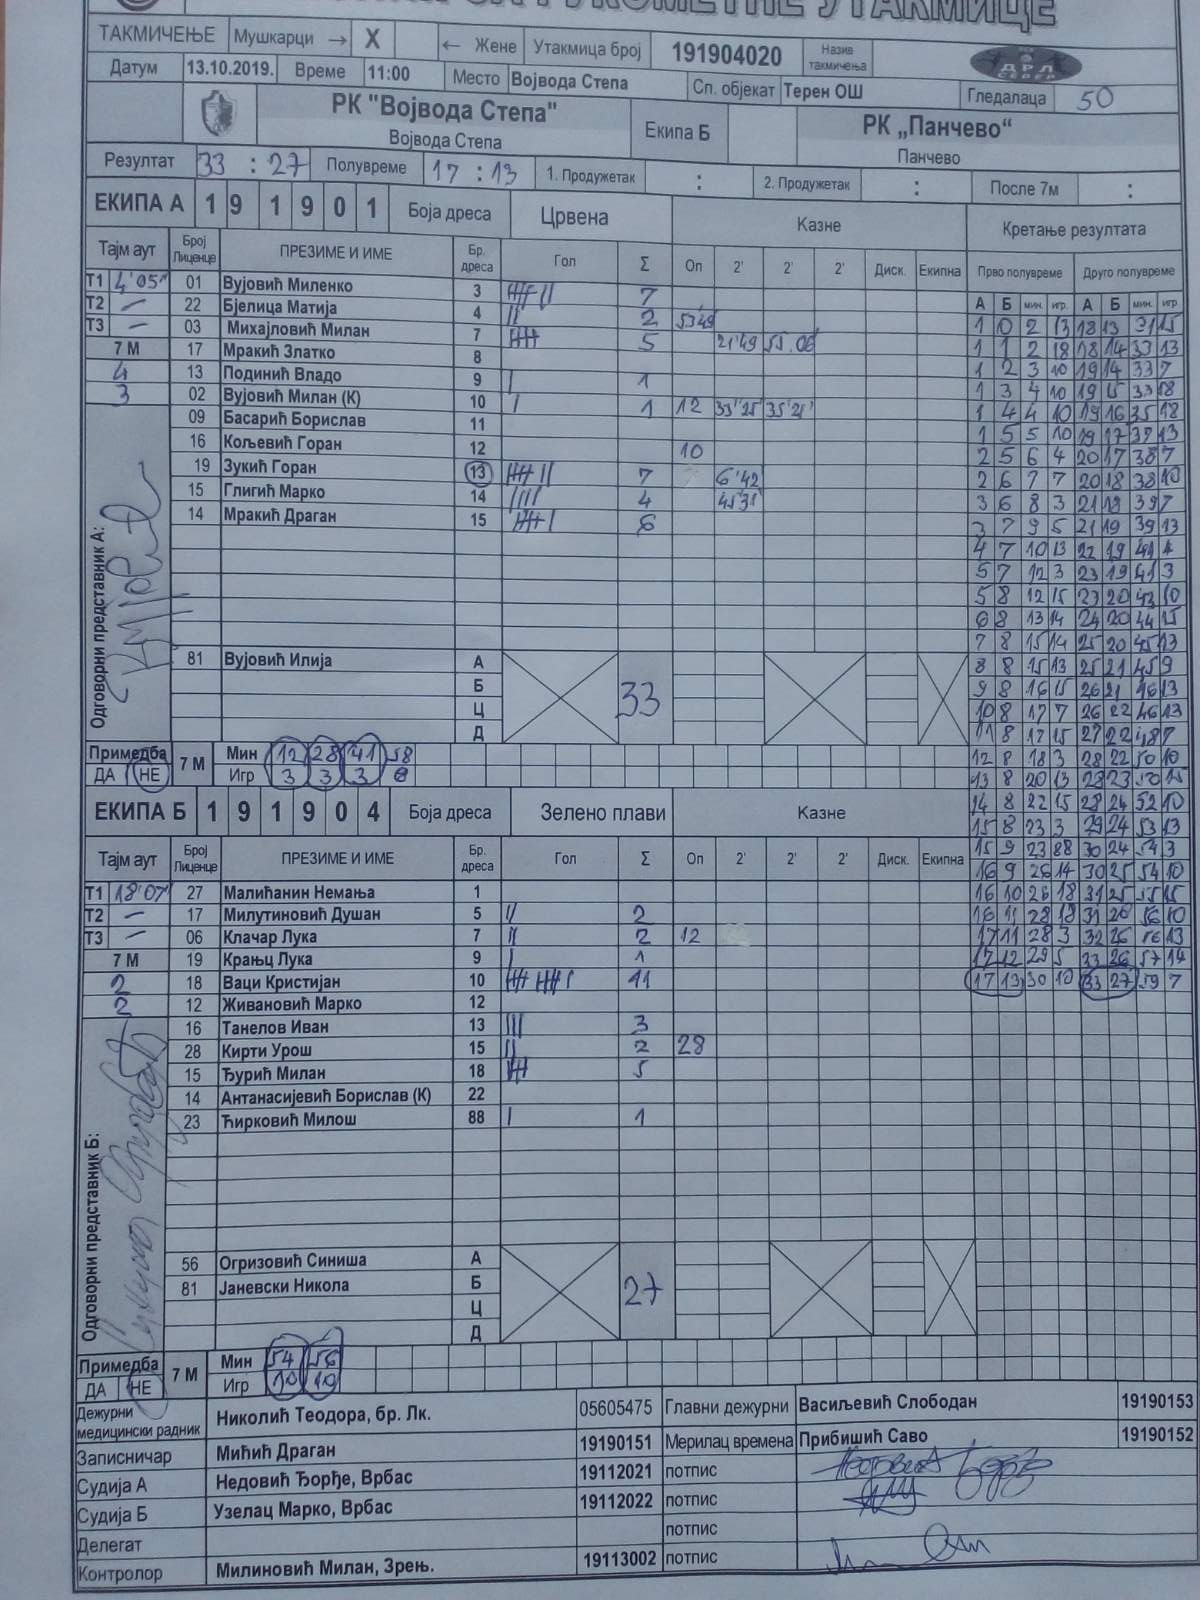 ЗАПИСНИК СА РУКОМЕТНЕ УТАКМИЦЕ
ТАКМИЧЕЊЕ Мушкарци → X ← Жене Утакмица број 191904020 Назив такмичења ДРЛ СЕВЕР
Датум 13.10.2019. Време 11:00 Место Војвода Степа Сп. објекат Терен ОШ Гледалаца 50
РК "Војвода Степа" Војвода Степа Екипа Б РК „Панчево“ Панчево
Резултат 33 : 27 Полувреме 17 : 13 1. Продужетак : 2. Продужетак : После 7м :
ЕКИПА А 1 9 1 9 0 1 Боја дреса Црвена Казне Кретање резултата
Тајм аут Број Лиценце ПРЕЗИМЕ И ИМЕ Бр. дреса Гол Σ Оп 2' 2' 2' Диск. Екипна Прво полувреме Друго полувреме
А Б мин. игр. А Б мин. игр.
Т1 4'05" 01 Вујовић Миленко 3 7
Т2 — 22 Бјелица Матија 4 2 53'49
Т3 — 03 Михајловић Милан 7 5 21'49 55.06
7 М 17 Мракић Златко 8
4 13 Подинић Владо 9 1
3 02 Вујовић Милан (К) 10 1 12 33'25 35'21'
09 Басарић Борислав 11
16 Кољевић Горан 12 10
19 Зукић Горан 13 7 6'42
15 Глигић Марко 14 4 45'31
14 Мракић Драган 15 6
81 Вујовић Илија А
Б
Ц
Д
33
Одговорни представник А:
Примедба ДА НЕ 7 М Мин 12 28 41 58
Игр 3 3 3 8
ЕКИПА Б 1 9 1 9 0 4 Боја дреса Зелено плави Казне
Тајм аут Број Лиценце ПРЕЗИМЕ И ИМЕ Бр. дреса Гол Σ Оп 2' 2' 2' Диск. Екипна
Т1 18'07 27 Малићанин Немања 1
Т2 — 17 Милутиновић Душан 5 2
Т3 — 06 Клачар Лука 7 2 12
7 М 19 Крањц Лука 9 1
2 18 Ваци Кристијан 10 11
2 12 Живановић Марко 12
16 Танелов Иван 13 3
28 Кирти Урош 15 2 28
15 Ђурић Милан 18 5
14 Антанасијевић Борислав (К) 22
23 Ћирковић Милош 88 1
56 Огризовић Синиша А
81 Јаневски Никола Б
Ц
Д
27
Одговорни представник Б:
Примедба ДА НЕ 7 М Мин 54 56
Игр 10 10
1 0 2 13 18 13 31 15
1 1 2 18 18 14 33 13
1 2 3 10 19 14 33 7
1 3 4 10 19 15 33 18
1 4 4 10 19 16 35 18
1 5 5 10 19 17 37 13
2 5 6 4 20 17 38 7
2 6 7 7 20 18 38 10
3 6 8 3 21 18 39 7
3 7 9 5 21 19 39 13
4 7 10 13 22 19 41 4
5 7 12 3 23 19 41 3
5 8 12 15 23 20 43 10
6 8 13 14 24 20 44 15
7 8 15 14 25 20 45 13
8 8 15 13 25 21 45 9
9 8 16 15 26 21 46 13
10 8 17 7 26 22 46 13
11 8 17 15 27 22 48 7
12 8 18 3 28 22 50 10
13 8 20 13 28 23 50 15
14 8 22 15 28 24 52 10
15 8 23 3 29 24 53 13
15 9 23 88 30 24 54 3
16 9 26 14 30 25 54 10
16 10 26 18 31 25 55 15
16 11 28 18 31 26 56 10
17 11 28 3 32 26 56 13
17 12 29 5 33 26 57 14
17 13 30 10 33 27 59 7
Дежурни медицински радник Николић Теодора, бр. Лк. 05605475 Главни дежурни Васиљевић Слободан 19190153
Записничар Мићић Драган 19190151 Мерилац времена Прибишић Саво 19190152
Судија А Недовић Ђорђе, Врбас 19112021 потпис
Судија Б Узелац Марко, Врбас 19112022 потпис
Делегат потпис
Контролор Милиновић Милан, Зрењ. 19113002 потпис